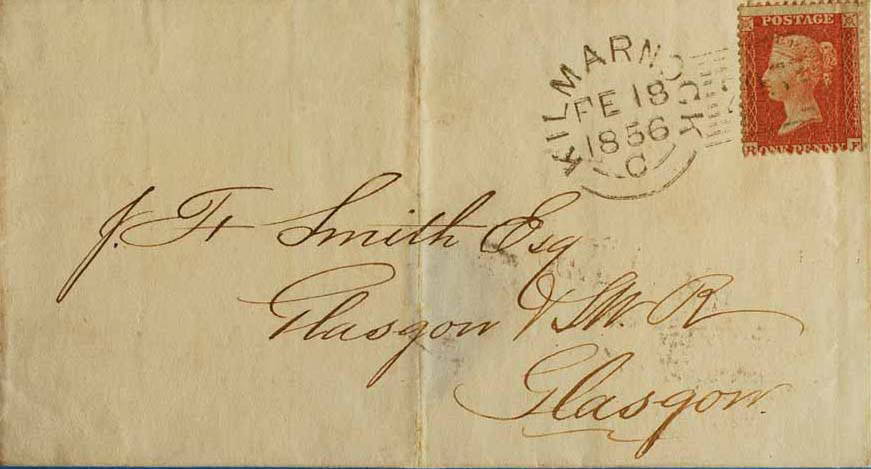 POSTAGE
ONE PENNY
R F
KILMARNOCK
FE 18
1856
C
J. F. Smith Esq
Glasgow & S.W. R
Glasgow